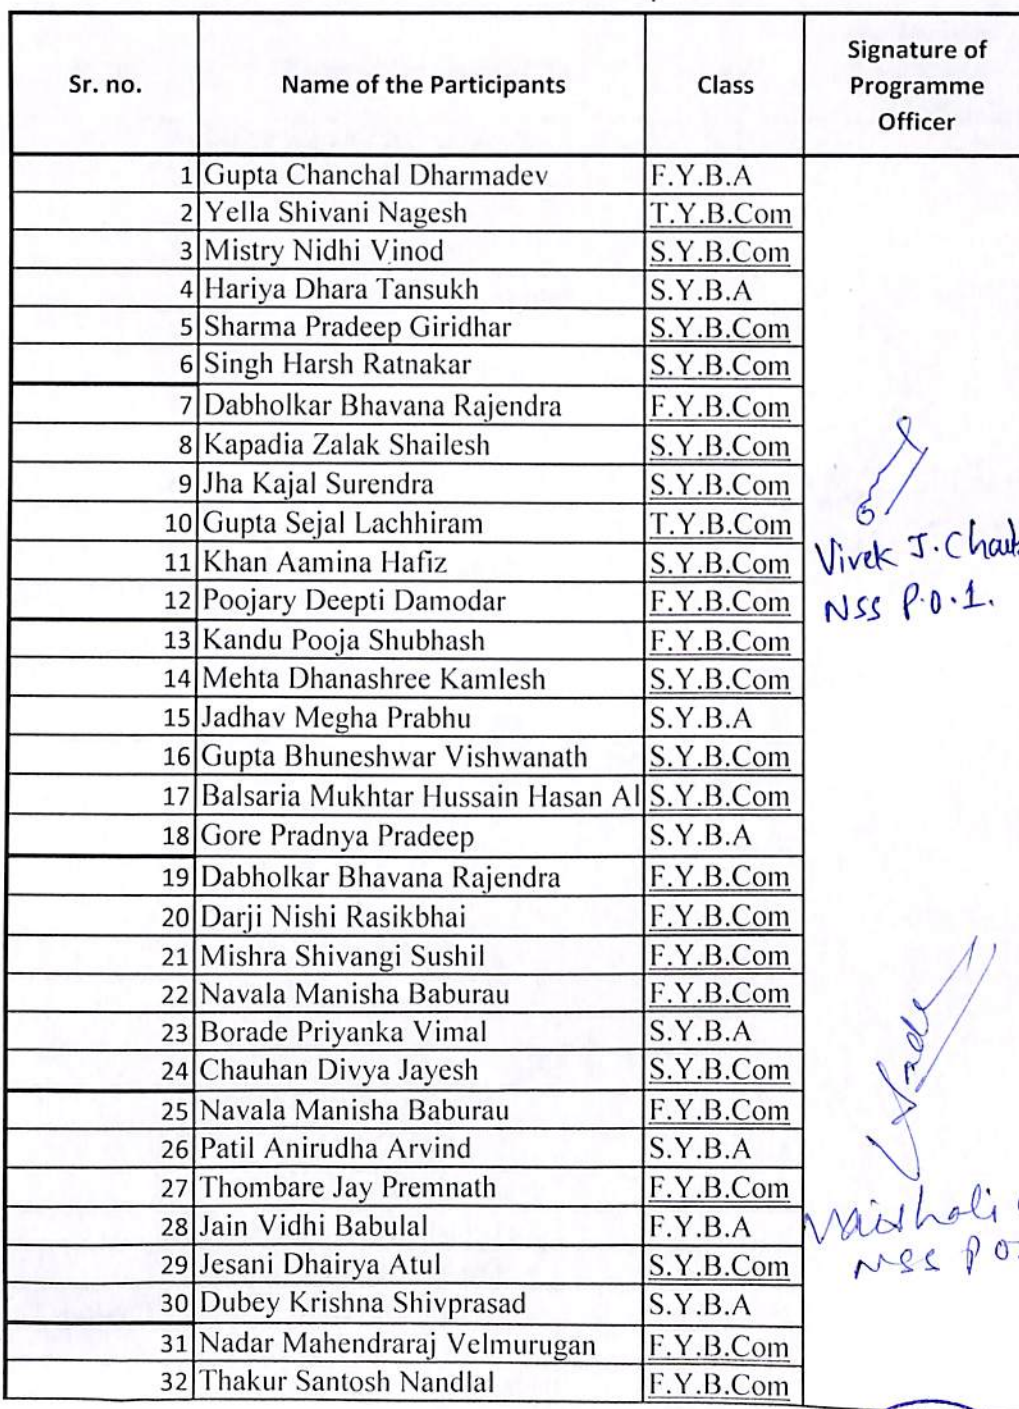 Sr. no. Name of the Participants Class Signature of Programme Officer
1 Gupta Chanchal Dharmadev F.Y.B.A
2 Yella Shivani Nagesh T.Y.B.Com
3 Mistry Nidhi Vinod S.Y.B.Com
4 Hariya Dhara Tansukh S.Y.B.A
5 Sharma Pradeep Giridhar S.Y.B.Com
6 Singh Harsh Ratnakar S.Y.B.Com
7 Dabholkar Bhavana Rajendra F.Y.B.Com
8 Kapadia Zalak Shailesh S.Y.B.Com
9 Jha Kajal Surendra S.Y.B.Com
10 Gupta Sejal Lachhiram T.Y.B.Com
11 Khan Aamina Hafiz S.Y.B.Com
12 Poojary Deepti Damodar F.Y.B.Com
13 Kandu Pooja Shubhash F.Y.B.Com
14 Mehta Dhanashree Kamlesh S.Y.B.Com
15 Jadhav Megha Prabhu S.Y.B.A
16 Gupta Bhuneshwar Vishwanath S.Y.B.Com
17 Balsaria Mukhtar Hussain Hasan Al S.Y.B.Com
18 Gore Pradnya Pradeep S.Y.B.A
19 Dabholkar Bhavana Rajendra F.Y.B.Com
20 Darji Nishi Rasikbhai F.Y.B.Com
21 Mishra Shivangi Sushil F.Y.B.Com
22 Navala Manisha Baburau F.Y.B.Com
23 Borade Priyanka Vimal S.Y.B.A
24 Chauhan Divya Jayesh S.Y.B.Com
25 Navala Manisha Baburau F.Y.B.Com
26 Patil Anirudha Arvind S.Y.B.A
27 Thombare Jay Premnath F.Y.B.Com
28 Jain Vidhi Babulal F.Y.B.A
29 Jesani Dhairya Atul S.Y.B.Com
30 Dubey Krishna Shivprasad S.Y.B.A
31 Nadar Mahendraraj Velmurugan F.Y.B.Com
32 Thakur Santosh Nandlal F.Y.B.Com
Vivek J.
NSS P.O.1.
Vaishali
NSS PO